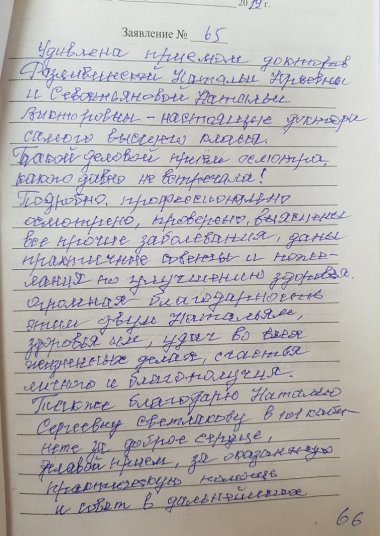 2019 г.
Заявление № 65
Удивлена приемом докторов
Натальи Юрьевны
и Севостьяновой Натальи
Викторовны – настоящие доктора
самого высшего класса.
Такой деловой приём осмотра,
какого давно не встречала!
Подробно, профессионально
осмотрено, проверено, выяснены
все прочие заболевания, даны
практичные советы и поже-
лания по улучшению здоровья.
Огромная благодарность
этим двум Натальям,
здоровья им, удач во всех
жизненных делах, счастья
личного и благополучия.
Также благодарю Наталью
Сергеевну Светлакову в 101 каби-
нете за доброе сердце,
деловой прием, за оказанную
практическую помощь
и совет в дальнейшем.
66